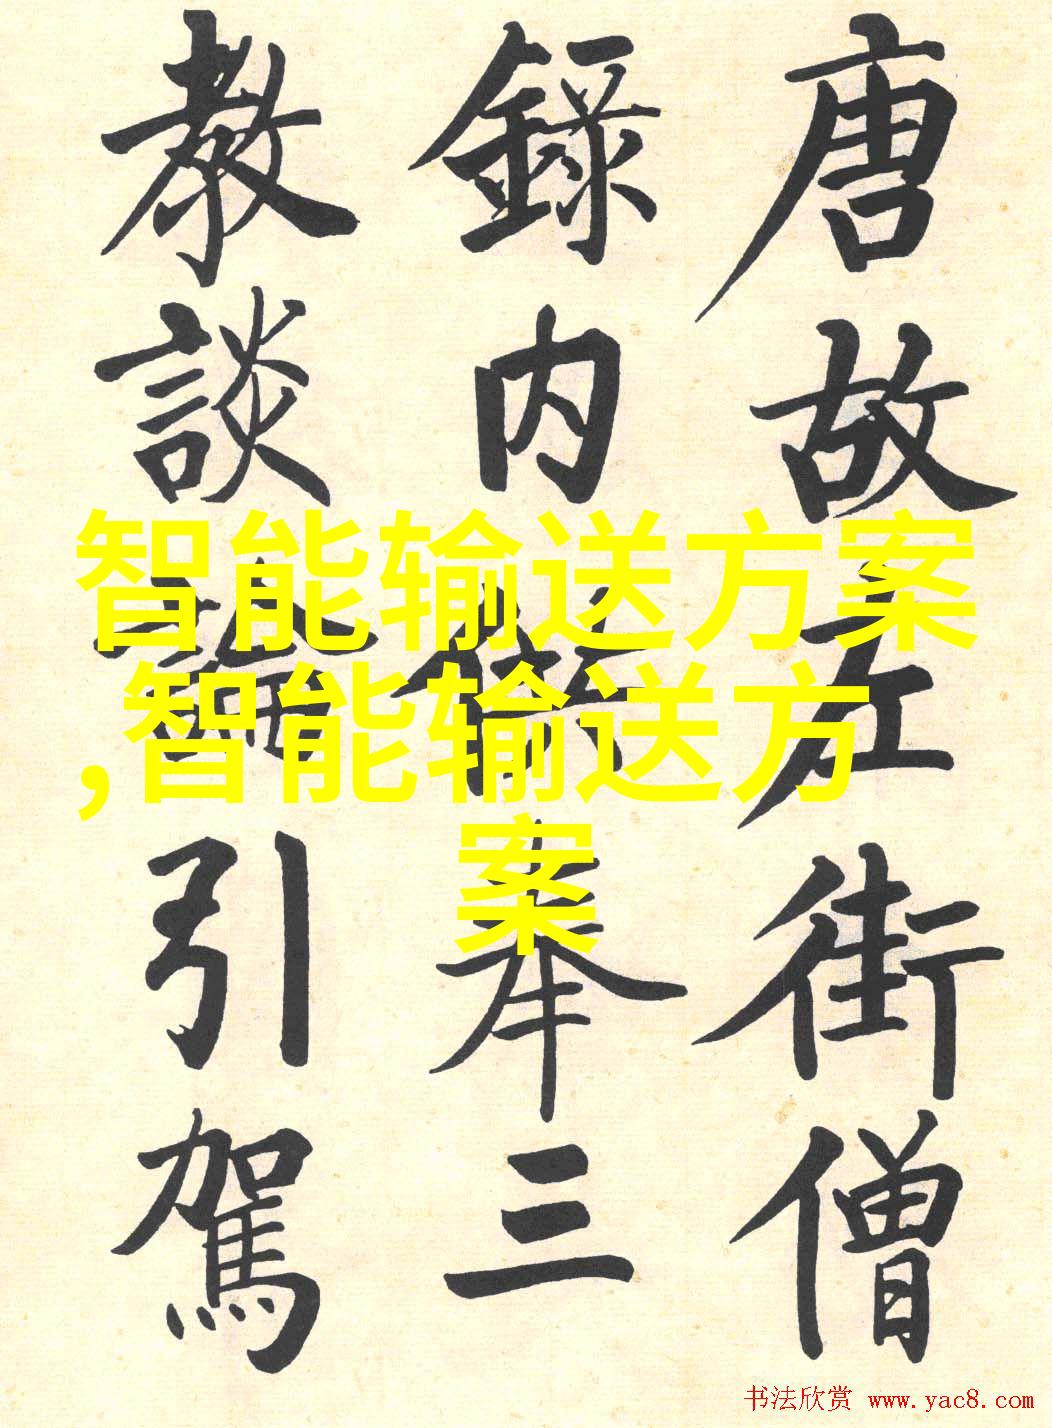 唐故左街僧
錄内供奉三
教談論引駕
智能输送方案
,智能输送方
案
书法欣赏 www.yac8.com